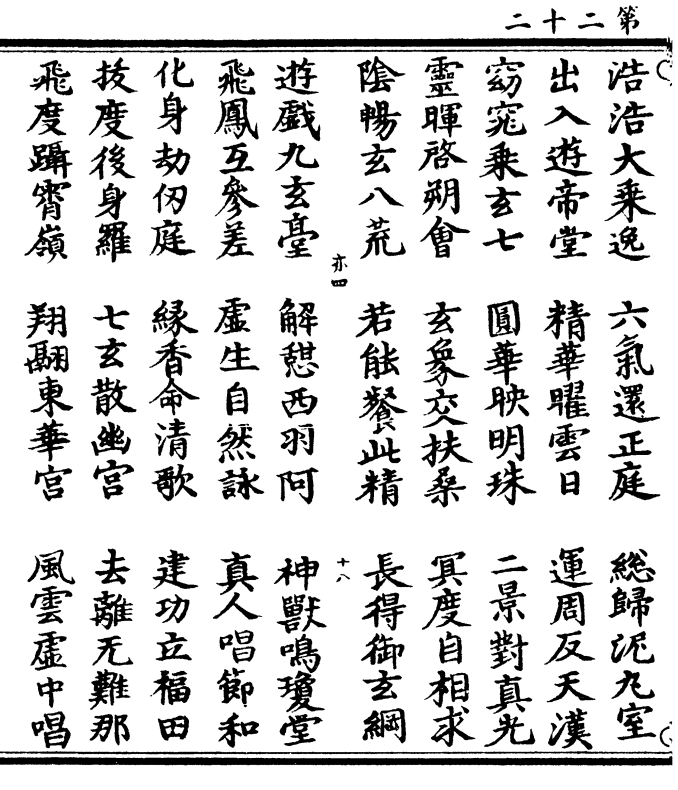 第二十二
浩浩大乗逸 六氣還正庭 総歸泥丸室
出入遊帝堂 精華曜雲日 運周反天漢
窈窕乗玄七 圓華映明珠 二景對真光
靈暉啓朔會 玄象交扶桑 冥度自相求
陰暢玄八荒 若能餐此精 長得御玄綱
亦四 十八
遊戯九玄臺 解憇西羽阿 神獸鳴瓊堂
飛鳳互參差 虛生自然詠 真人唱節和
化身劫仞庭 縁香命清歌 建功立福田
拔度後身羅 七玄散幽宮 去離无難那
飛度躡霄嶺 翔翮東華宮 風雲虛中唱